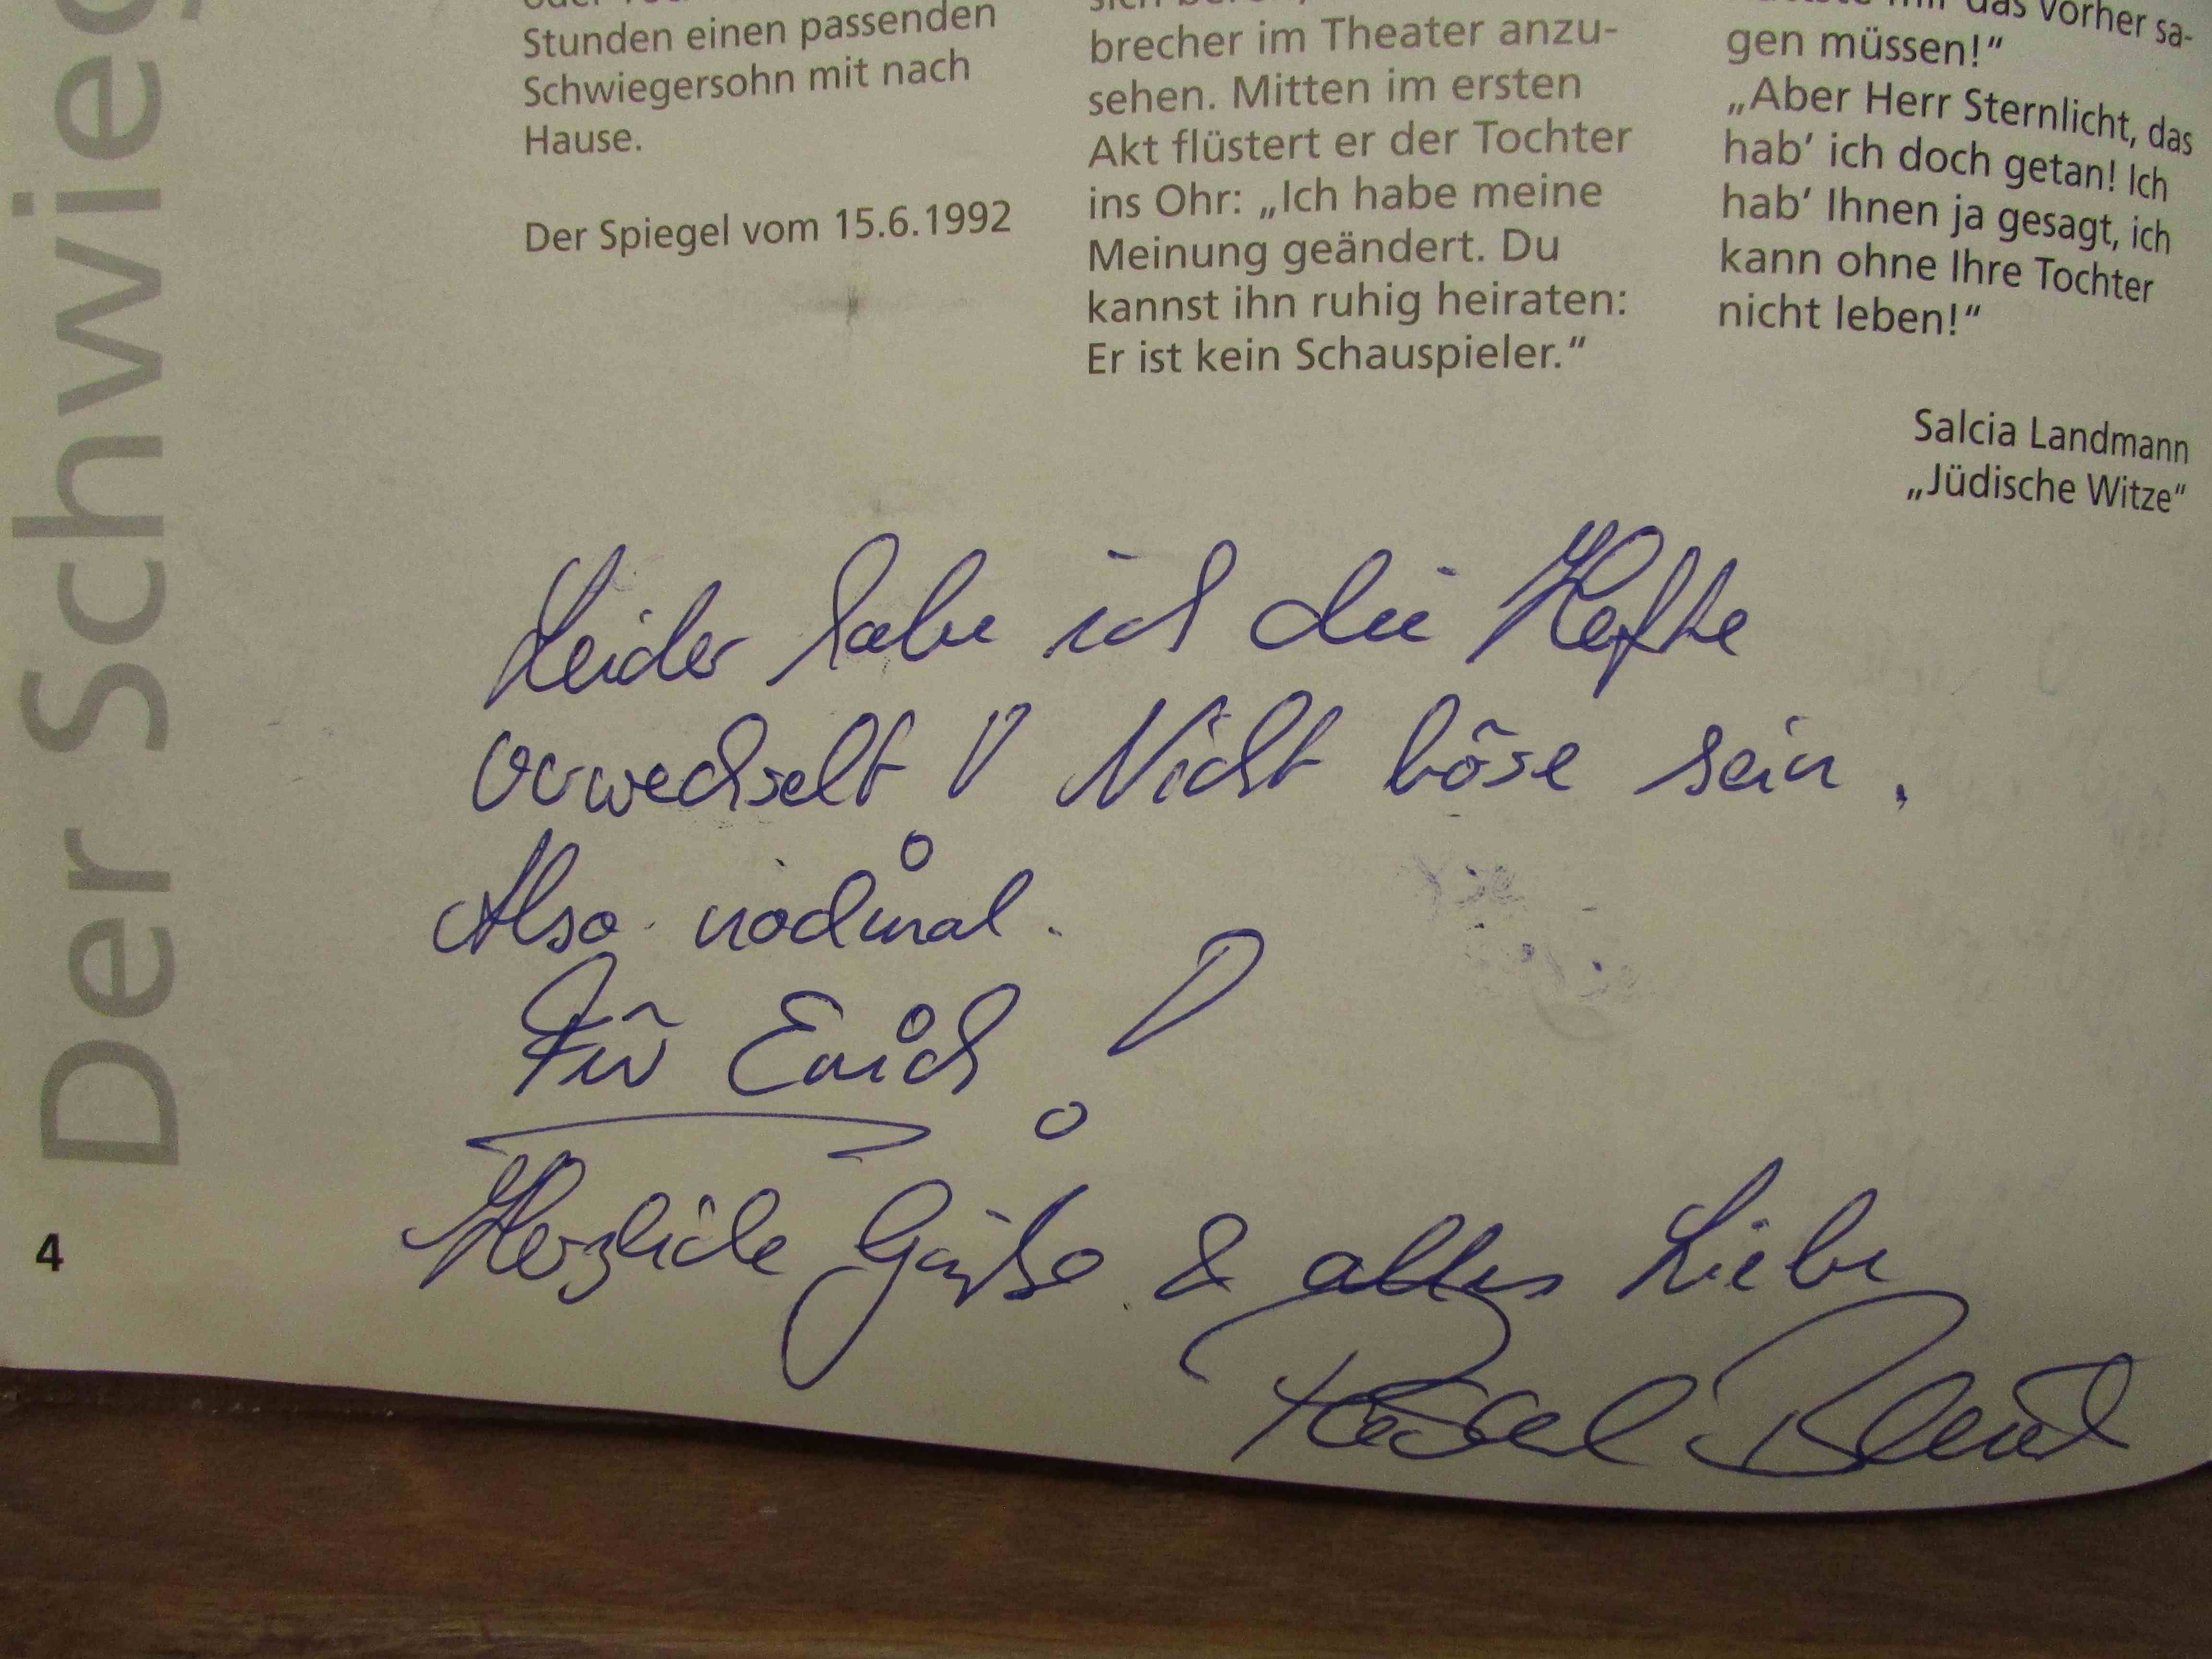 Der Schwieg
Stunden einen passenden
Schwiegersohn mit nach
Hause.
Der Spiegel vom 15.6.1992
brecher im Theater anzu-
sehen. Mitten im ersten
Akt flüstert er der Tochter
ins Ohr: „Ich habe meine
Meinung geändert. Du
kannst ihn ruhig heiraten:
Er ist kein Schauspieler.“
das vorher sa-
gen müssen!“
„Aber Herr Sternlicht, das
hab’ ich doch getan! Ich
hab’ Ihnen ja gesagt, ich
kann ohne Ihre Tochter
nicht leben!“
Salcia Landmann
„Jüdische Witze“
Leider habe ich die Hefte
verwechselt! Nicht böse sein.
Also nochmal.
Für Erich!
Herzliche Grüße & alles Liebe
4